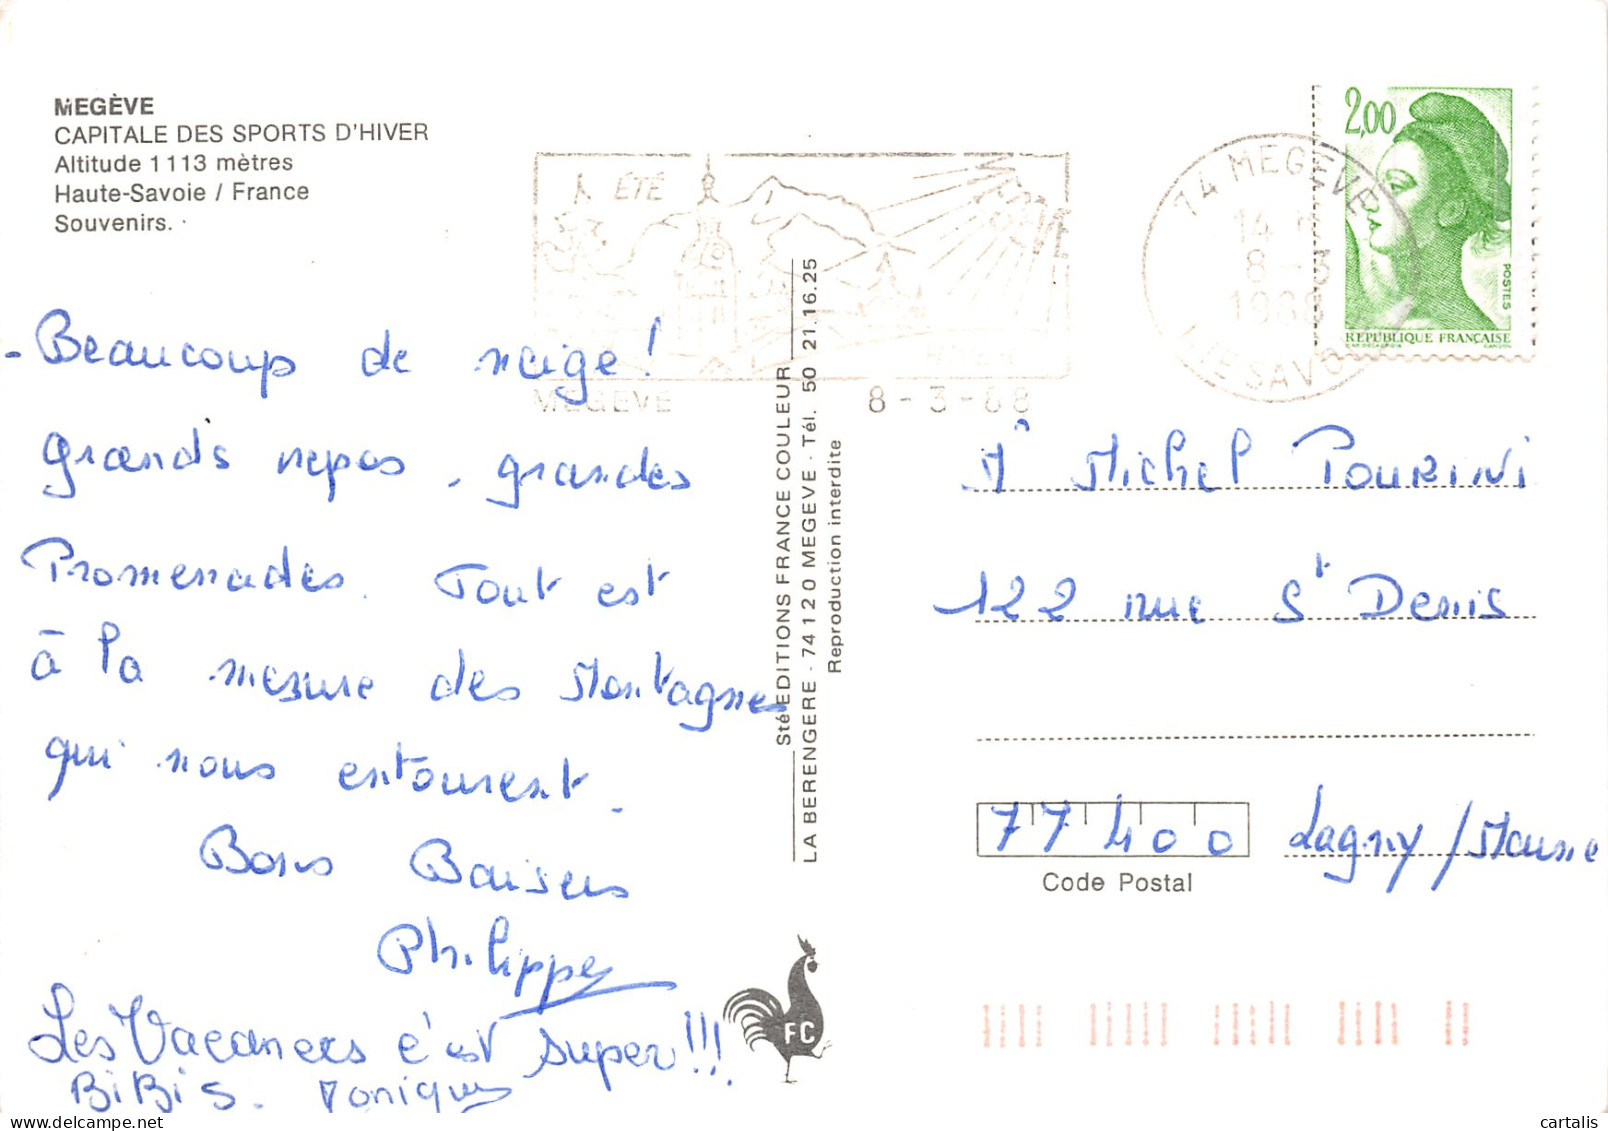 MEGÈVE
CAPITALE DES SPORTS D'HIVER
Altitude 1113 mètres
Haute-Savoie / France
Souvenirs.
ÉTÉ
MEGEVE
8 - 3 - 88
74 MEGÈVE
14 H
8 - 3
1988
HTE SAVOIE
2,00
POSTES
REPUBLIQUE FRANÇAISE
- Beaucoup de neige !
grands repas, grandes
Promenades. Tout est
à la mesure des Montagnes
qui nous entourent.
Bons Baisers
Philippe
Les Vacances c'est super!!!
BiBis. Monique
Sté EDITIONS FRANCE COULEUR
LA BERENGERE - 74120 MEGEVE - Tél. 50 21.16.25
Reproduction interdite
FC
Mr Michel POURINI
122 rue St Denis
77400 Lagny/Marne
Code Postal
cartalis